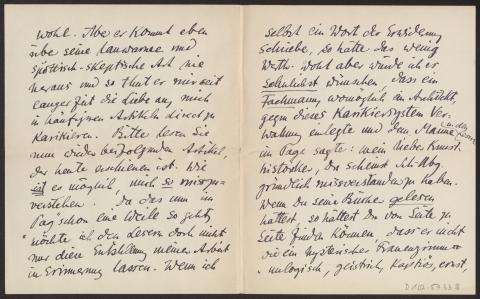 wohl. Aber er kommt eben
über seine lauwarme und
spöttisch-skeptische Art nie
heraus und so thut er mir seit
langer Zeit die Liebe an, mich
in häufigen Artikeln direct zu
karikieren. Bitte lesen Sie
nun wieder beifolgenden Artikel,
der heute erschienen ist. Wie
ist es möglich, mich so misszu-
verstehen. Da das nun im
Tag schon eine Weile so geht,
möchte ich den Lesern doch nicht
nur diese Entstellung meiner Arbeit
in Erinnerung lassen. Wenn ich
selbst ein Wort der Erwiderung
schriebe, so hätte das wenig
Werth. Wohl aber würde ich es
sehnlichst wünschen, dass ein
Fachmann, womöglich ein Architekt,
gegen dieses Karikiersystem Ver-
wahrung einlegte und dem Manne
im Tage sagte: mein lieber Kunst-
historiker, Du scheinst Sch-Nbg
gründlich missverstanden zu haben.
Wenn du seine Bücher gelesen
hättest, so hättest Du von Seite zu
Seite finden können, dass er nicht
wie ein hysterisches Frauenzimmer
unlogisch, geistreich, kapriciös, ernst,